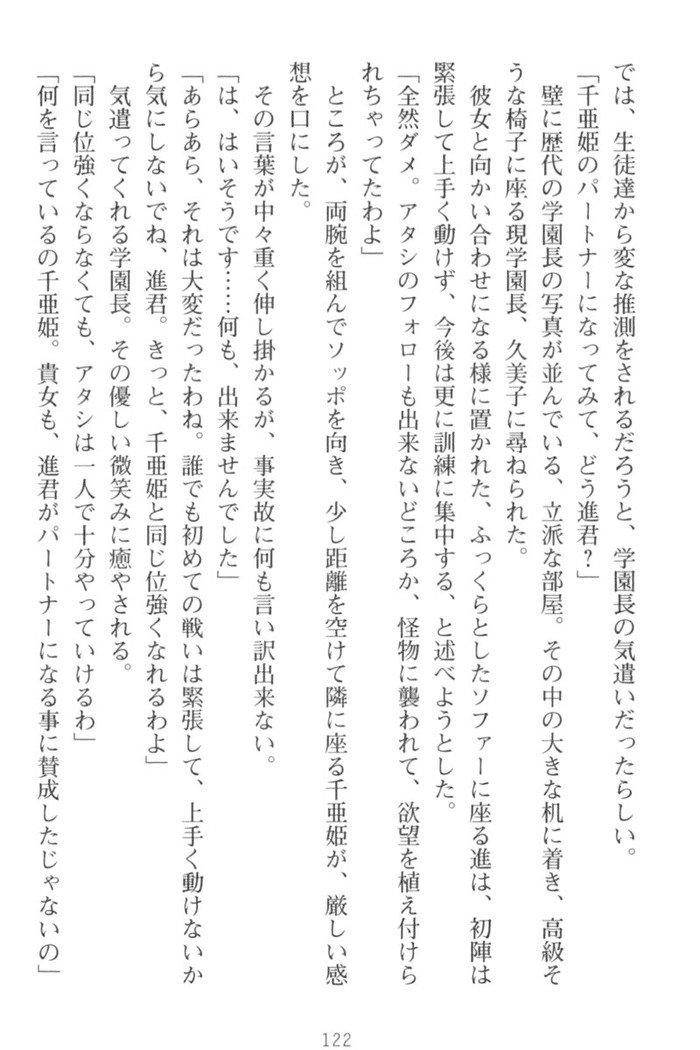 では、生徒達から変な推測をされるだろうと、学園長の気遣いだったらしい。
「千亜姫のパートナーになってみて、どう進君？」
　壁に歴代の学園長の写真が並んでいる、立派な部屋。その中の大きな机に着き、高級そ
うな椅子に座る現学園長、久美子に尋ねられた。
　彼女と向かい合わせになる様に置かれた、ふっくらとしたソファーに座る進は、初陣は
緊張して上手く動けず、今後は更に訓練に集中する、と述べようとした。
「全然ダメ。アタシのフォローも出来ないどころか、怪物に襲われて、欲望を植え付けら
れちゃってたわよ」
　ところが、両腕を組んでソッポを向き、少し距離を空けて隣に座る千亜姫が、厳しい感
想を口にした。
　その言葉が中々重く伸し掛かるが、事実故に何も言い訳出来ない。
「は、はいそうです……何も、出来ませんでした」
「あらあら、それは大変だったわね。誰でも初めての戦いは緊張して、上手く動けないか
ら気にしないでね、進君。きっと、千亜姫と同じ位強くなれるわよ」
　気遣ってくれる学園長。その優しい微笑みに癒やされる。
「同じ位強くならなくても、アタシは一人で十分やっていけるわ」
「何を言っているの千亜姫。貴女も、進君がパートナーになる事に賛成したじゃないの」
122